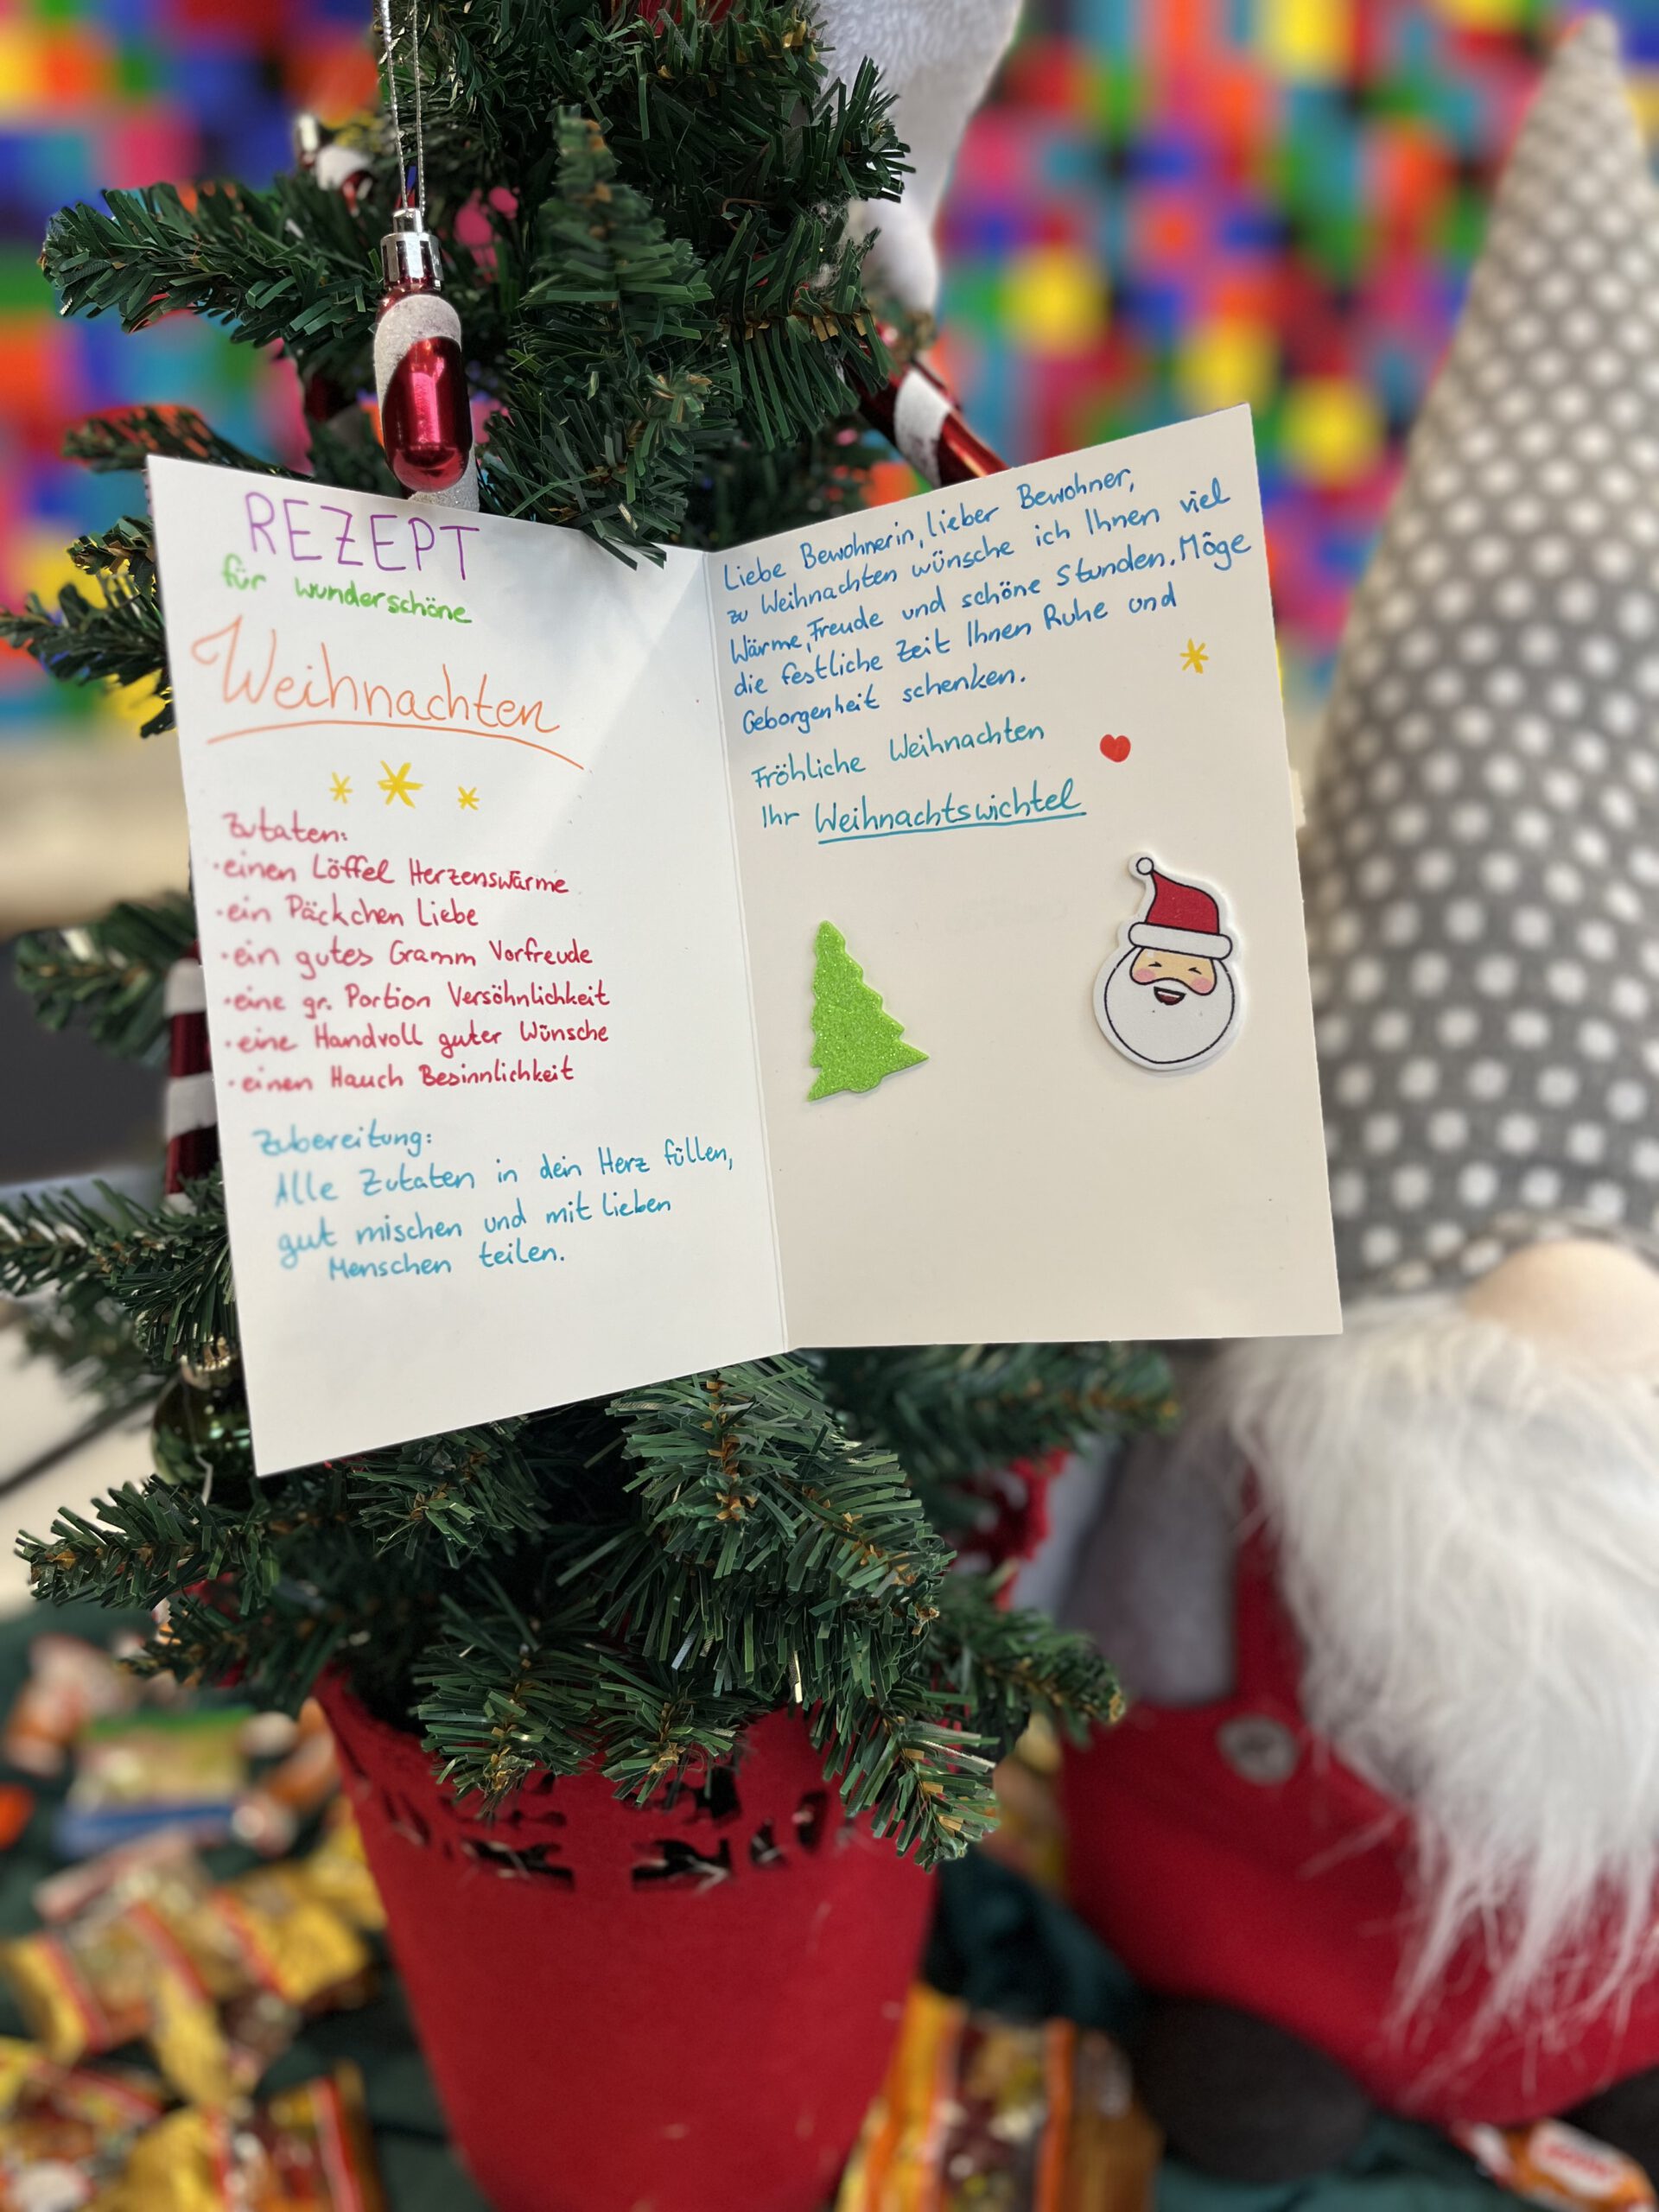 REZEPT
für wunderschöne
Weihnachten
Zutaten:
·einen Löffel Herzenswärme
·ein Päckchen Liebe
·ein gutes Gramm Vorfreude
·eine gr. Portion Versöhnlichkeit
·eine Handvoll guter Wünsche
·einen Hauch Besinnlichkeit
Zubereitung:
Alle Zutaten in dein Herz füllen,
gut mischen und mit lieben
Menschen teilen.
Liebe Bewohnerin, lieber Bewohner,
zu Weihnachten wünsche ich Ihnen viel
Wärme, Freude und schöne Stunden. Möge
die festliche Zeit Ihnen Ruhe und
Geborgenheit schenken.
Fröhliche Weihnachten
Ihr Weihnachtswichtel